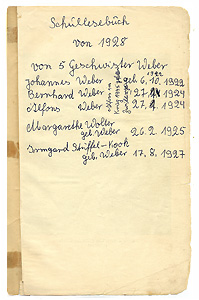 Schullesebuch
von 1928
von 5 Geschwister Weber
1922
Johannes Weber geb. 6.10.1922
Bernhard Weber 27. 1924
Alfons Weber 27. 1924
Margarethe Wolter
geb. Weber 26.2.1925
Irmgard Stiffel-Kook
geb. Weber 17.8.1927